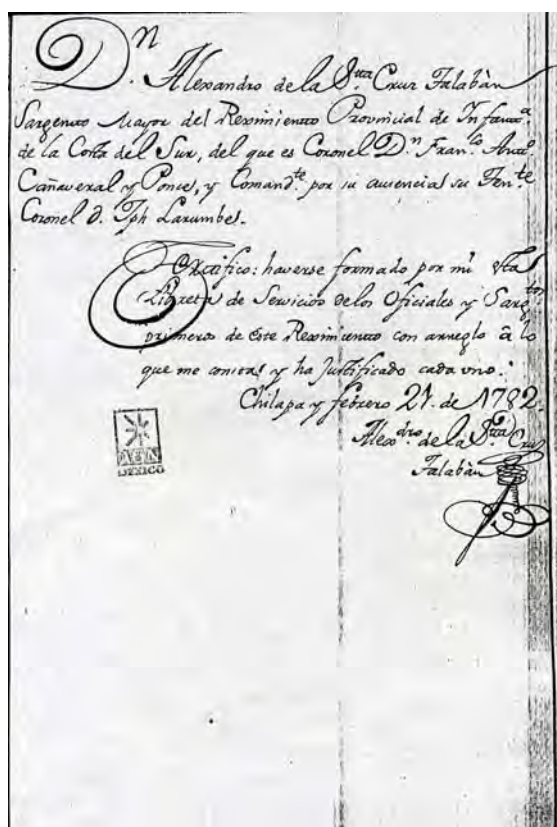 Dn. Alexandro de la Sta Cruz Talabàn
Sargento Mayor del Reximiento Provincial de Infanta.
de la Costa del Sur, del que es Coronel Dn Franco. Anto.
Cañaveral y Ponce, y Comandte por su ausencia su Tente
Coronel d. Jph Larumbe.
Certifico: haverse formado por mi esta
Libreta de Servicios delos Oficiales y Sargtos
primeros de este Reximiento con arreglo â lo
que me consta, y ha Justificado cada uno.
Chilapa y febrero 27. de 1782.
Alexdro. de la Sta Cruz
Talabàn
AGN
MEXICO